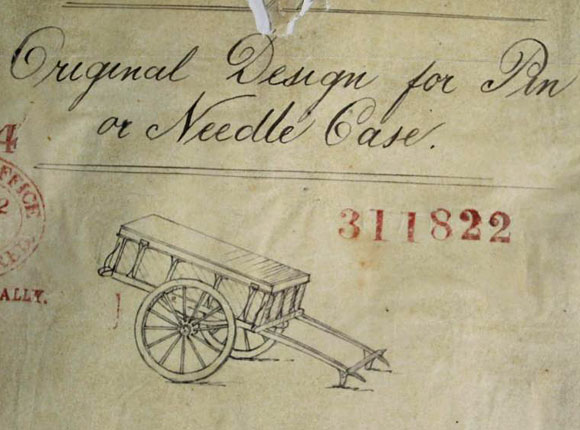 Original Design for Pin
or Needle Case.
4
OFFICE
2
311822
ALLY.